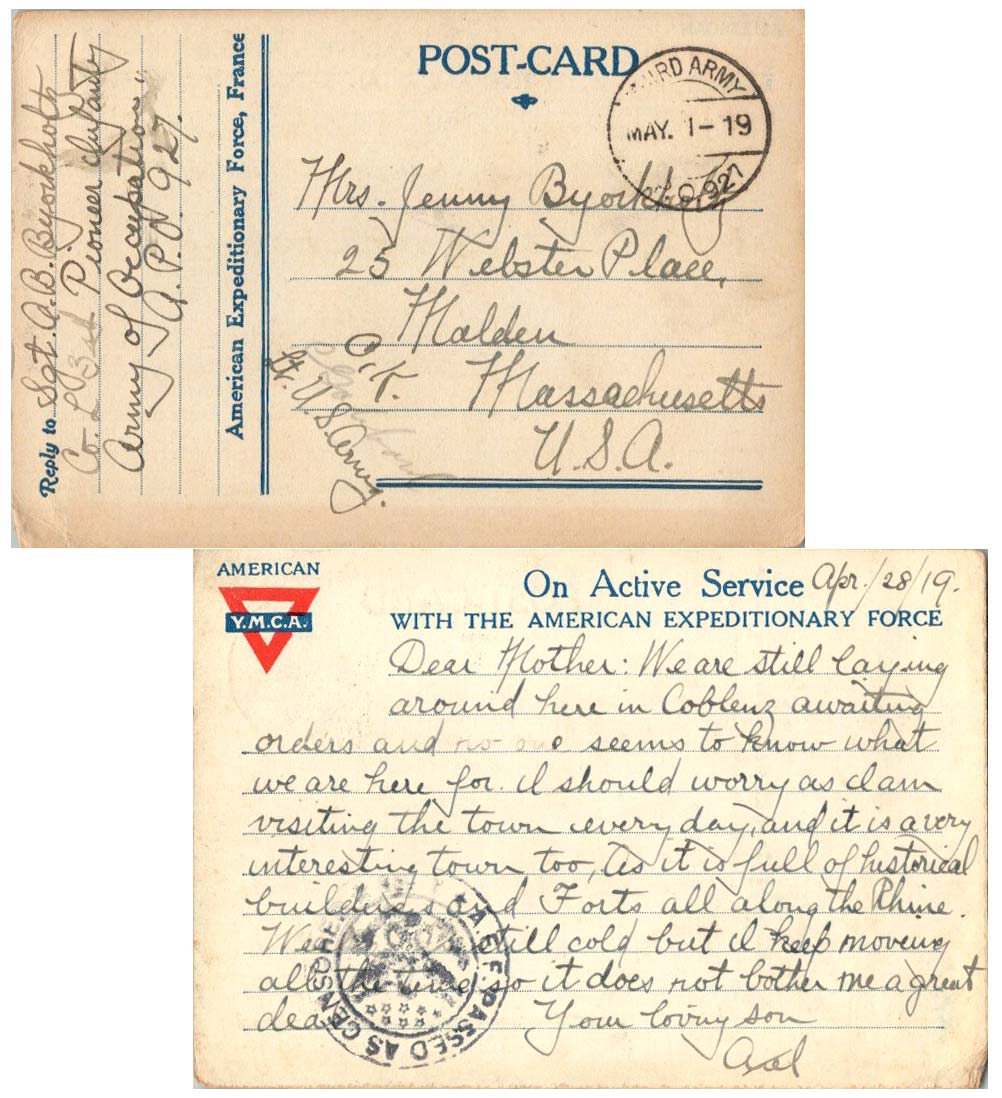 POST-CARD
THIRD ARMY
MAY. 1-19
P.O. 927
Mrs. Jenny Byorkholz
25 Webster Place,
Malden
Massachusetts
U.S.A.
O.K.
Lt. U.S. Army.
American Expeditionary Force, France
Reply to Sgt. A.B. Byorkholz
Co. L 3rd Pioneer Infantry
Army of Occupation"
A.P.O 927.
AMERICAN
Y.M.C.A.
On Active Service Apr./28/19.
WITH THE AMERICAN EXPEDITIONARY FORCE
Dear Mother: We are still laying
around here in Coblenz awaiting
orders and no one seems to know what
we are here for. I should worry as I am
visiting the town every day, and it is a very
interesting town too, as it is full of historical
buildings and Forts all along the Rhine.
still cold but I keep moving
all the time so it does not bother me a great
dea
Your loving son
Axel
A.E.F. PASSED AS CENSORED